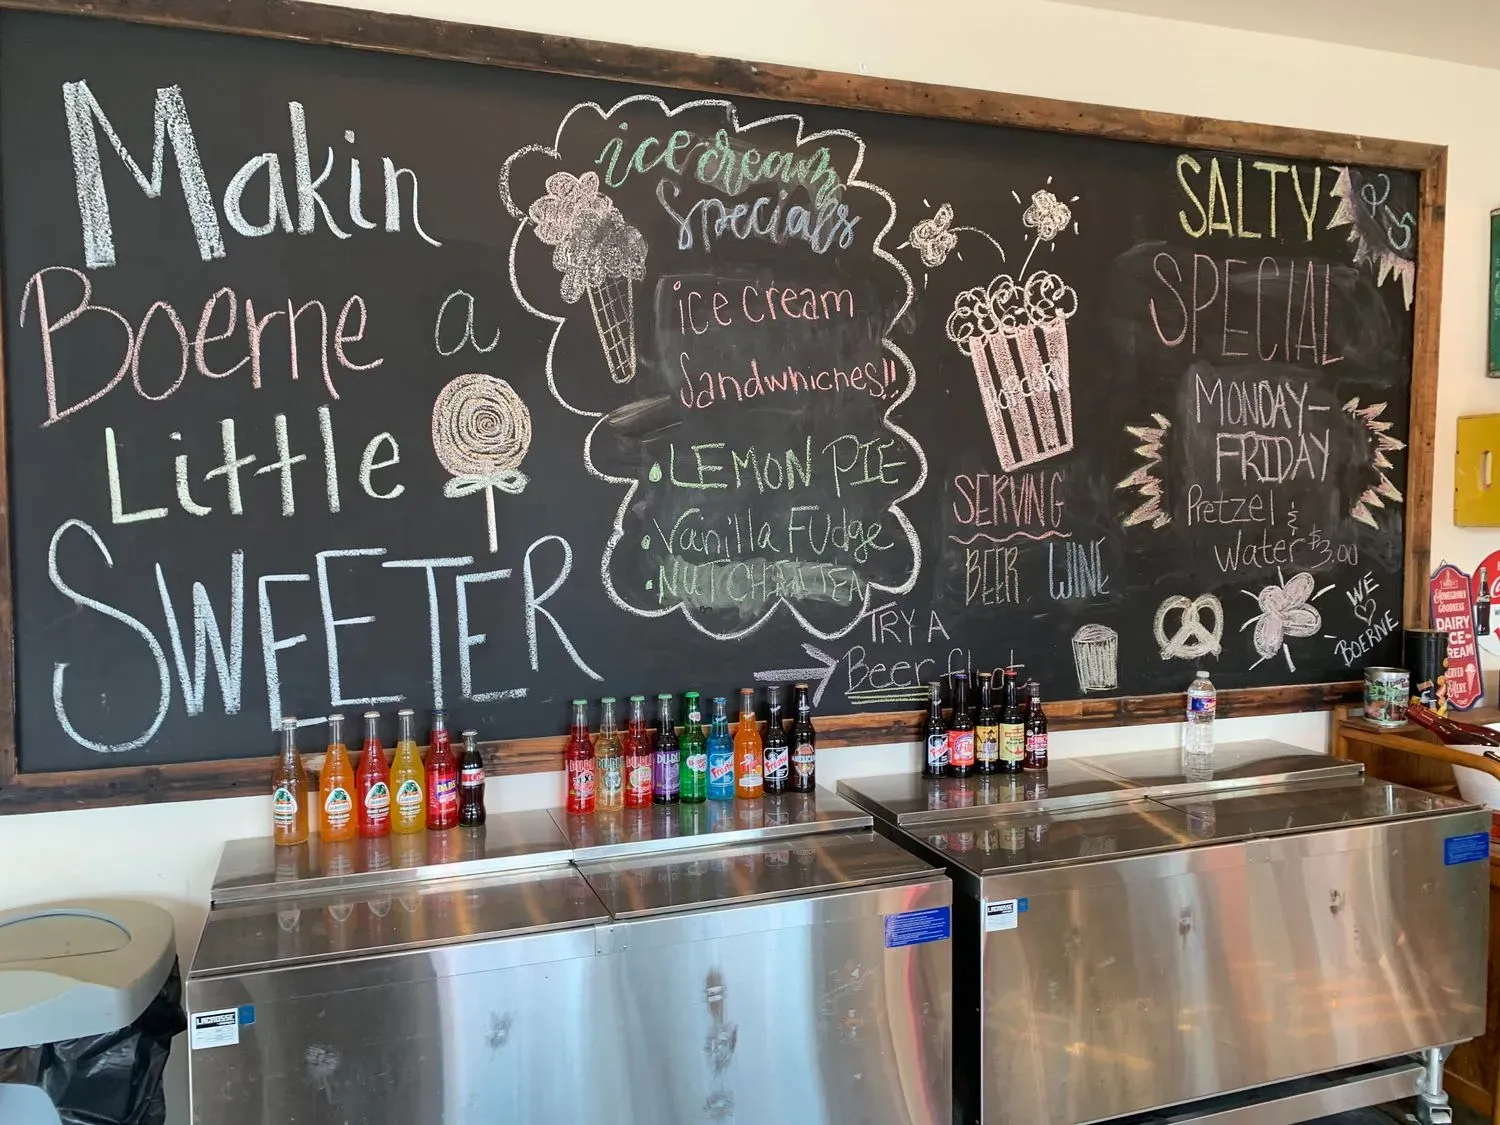 Makin
Boerne a
Little
SWEETER
ice cream
Specials
ice cream
Sandwhiches!!
• LEMON PIE
• Vanilla FUdge
TRY A
Beer float
POPCORN
SERVING
BEER WINE
SALTY
SPECIAL
MONDAY-
FRIDAY
Pretzel &
Water $3.00
WE
BOERNE
HOMEGROWN
GOODNESS
DAIRY
ICE-
REAM
LACROSSE
LACROSSE
DAD'S